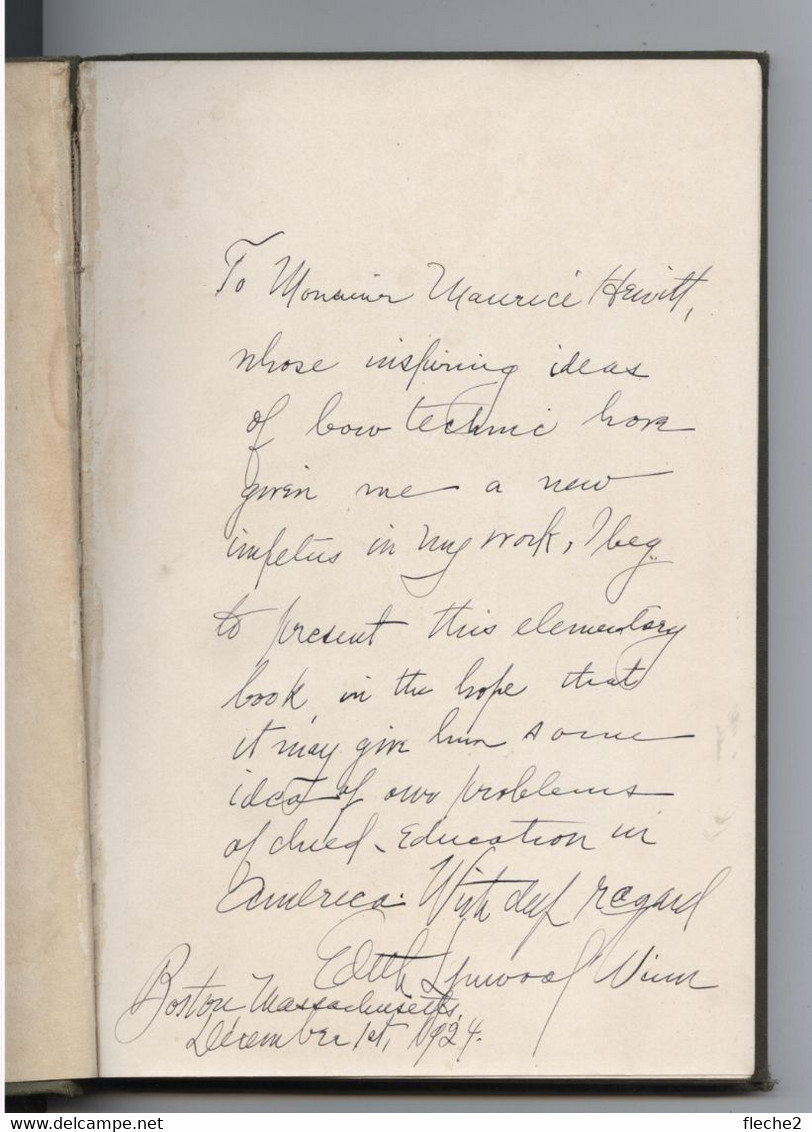 To Monsieur Maurice Hewitt,
whose inspiring ideas
of bow technic have
given me a new
impetus in my work, I beg
to present this elementary
book, in the hope that
it may give him some
idea of our problems
of child-Education in
America. With deep regard
Edith Lynwood Winn
Boston Massachusetts,
December 1st, 1924.
fleche2